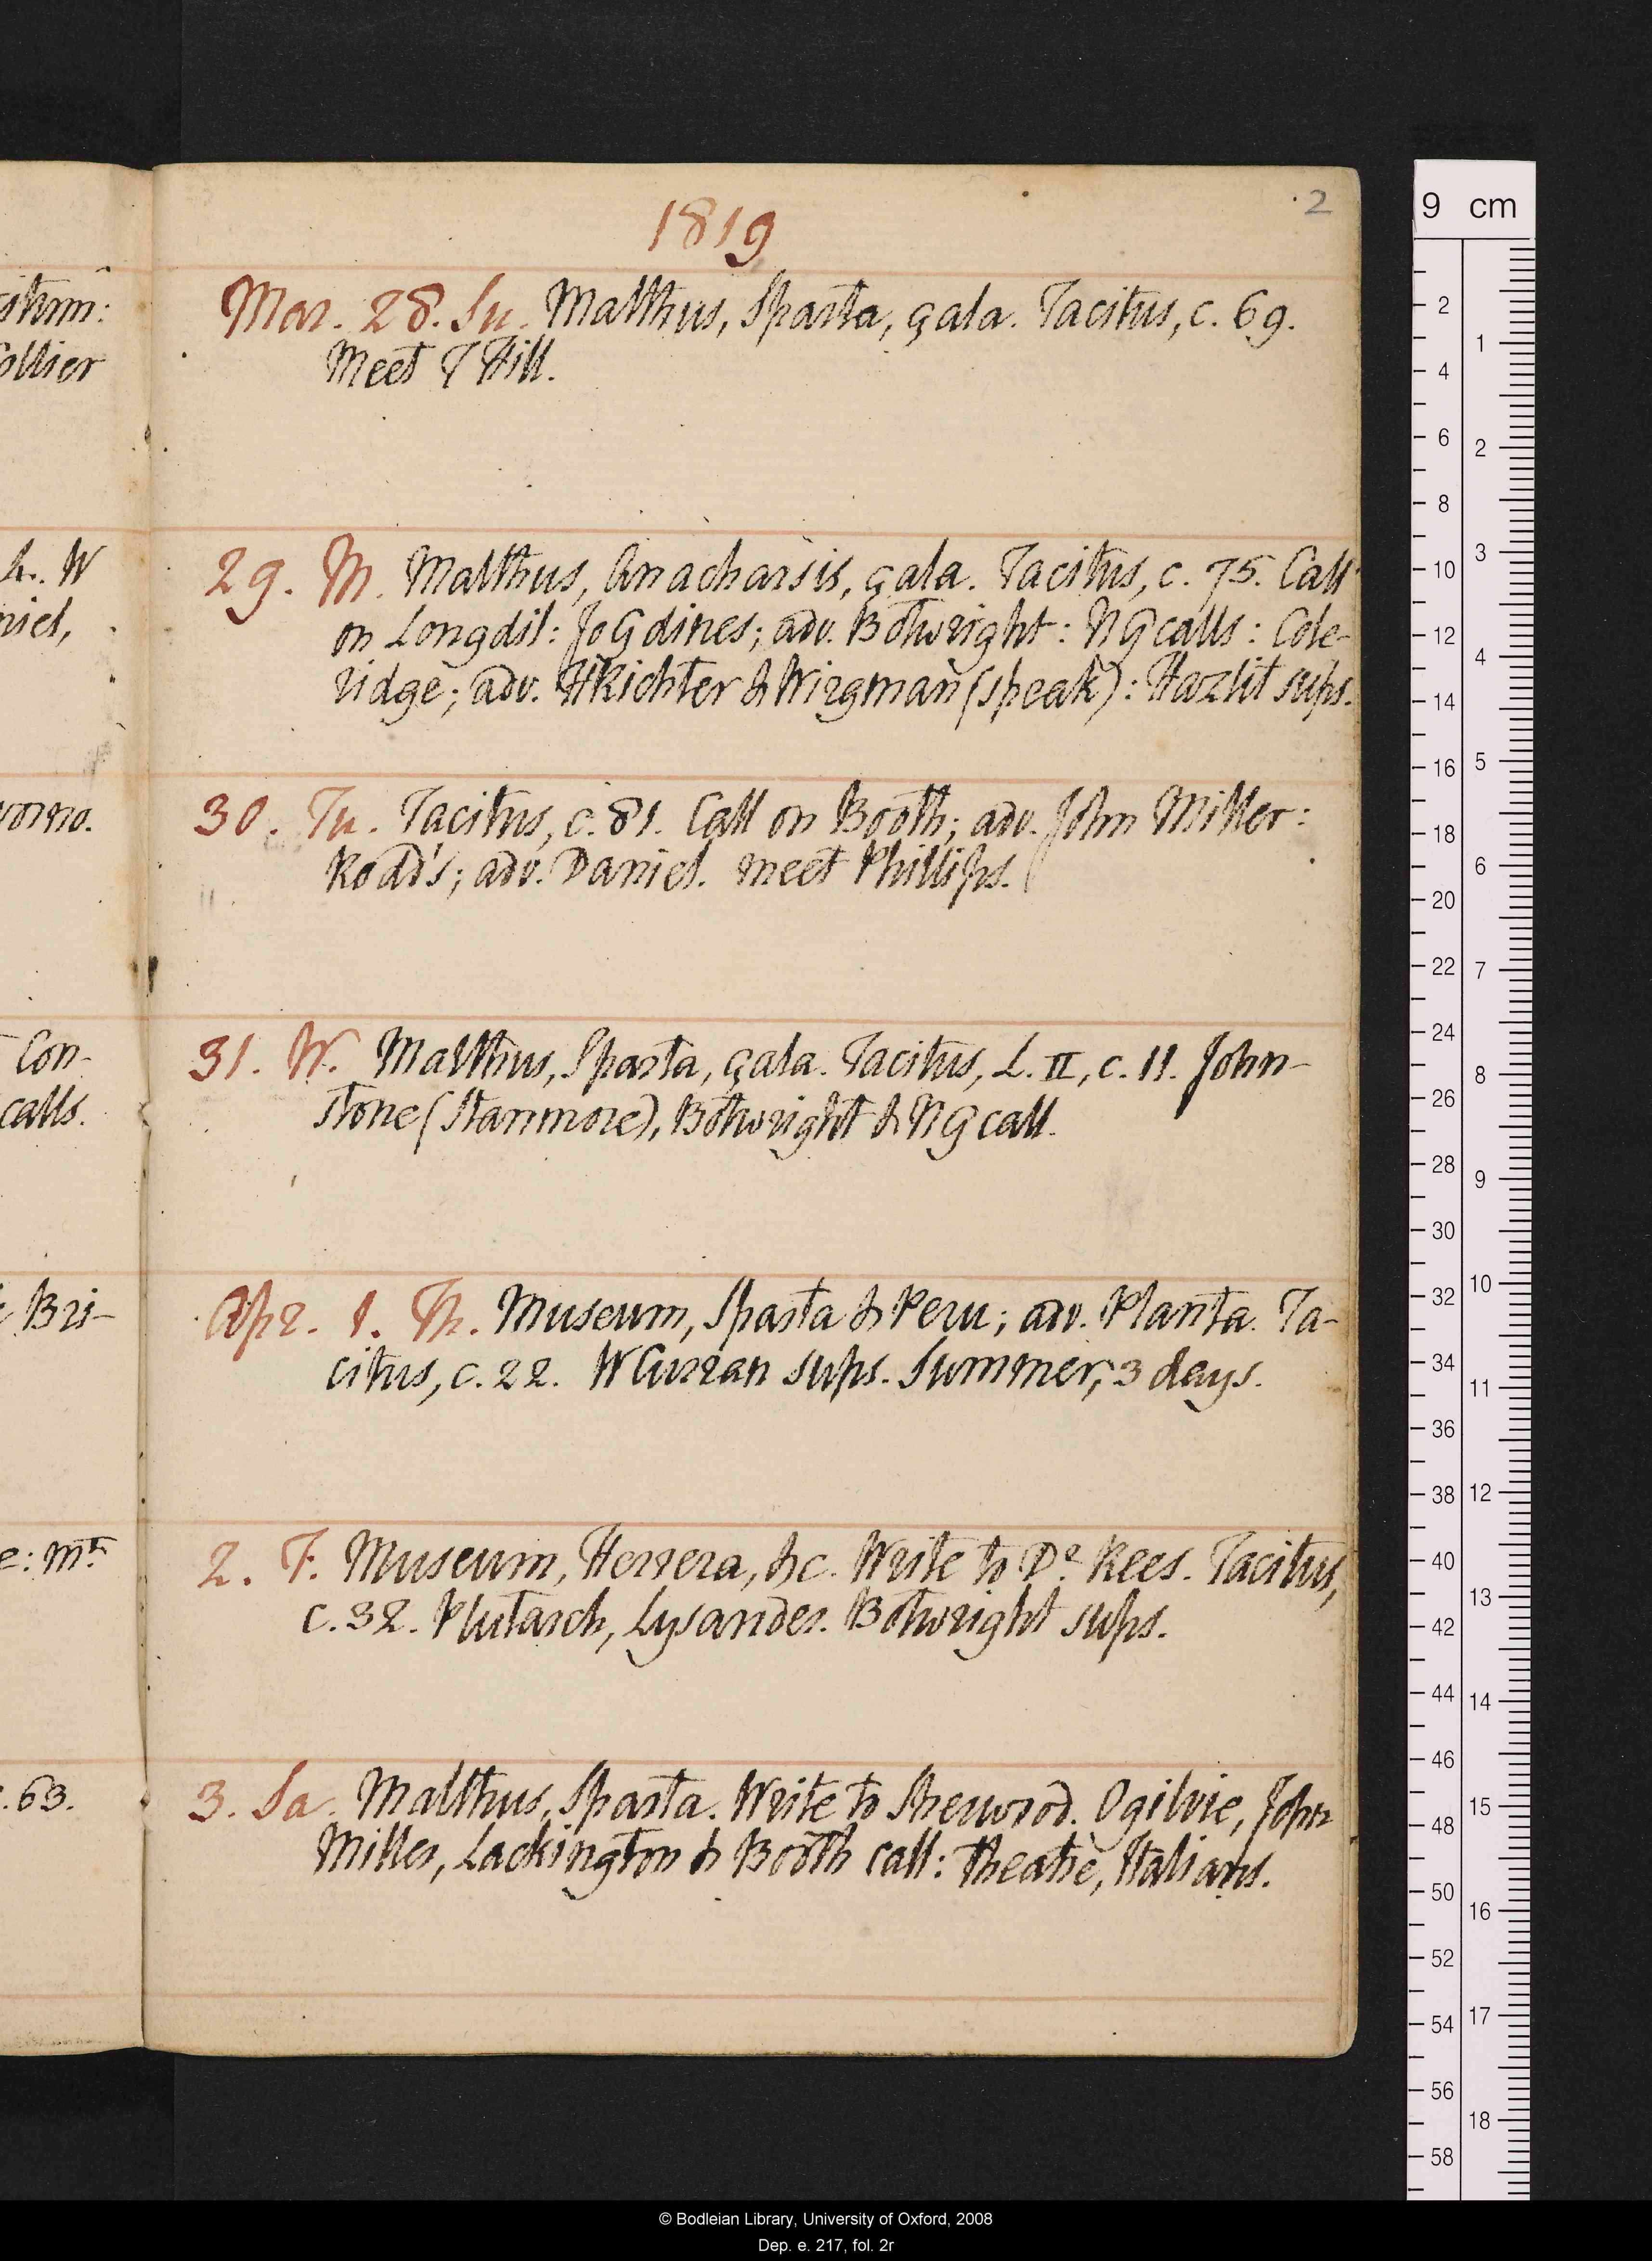 1819
2
Mar. 28. Su. Malthus, Sparta, çala. Tacitus, c. 69.
Meet T Hill.
29. M. Malthus, Anacharsis, çala. Tacitus, c. 75. Call
on Longdil: Jo G dines; adv. Botwright: N G calls: Cole-
ridge; adv. H Richter & Wirgman (speak): Hazlit sups.
30. Tu. Tacitus, c. 81. Call on Booth; adv. John Miller:
Rodd's; adv. Daniel. meet Phillips.
31. W. Malthus, Sparta, çala. Tacitus, L. II, c. 11. John-
stone (Stanmore), Botwright & N G call.
Apr. 1. Th. Museum, Sparta & Peru; adv. Planta. Ta-
citus, c. 22. W Curran sups. Summer, 3 days.
2. F. Museum, Herrera, &c. Write to Dr Rees. Tacitus,
c. 32. Plutarch, Lysander. Botwright sups.
3. Sa. Malthus, Sparta. Write to Sherwood. Ogilvie, John
Miller, Lackington & Booth call: Theatre, Italians.
ollier
L. W
niel,
Con-
calls.
Bri-
e: Mrs
. 63.
9 cm
2
4
6
8
10
12
14
16
18
20
22
24
26
28
30
32
34
36
38
40
42
44
46
48
50
52
54
56
58
1
2
3
4
5
6
7
8
9
10
11
12
13
14
15
16
17
18
© Bodleian Library, University of Oxford, 2008
Dep. e. 217, fol. 2r